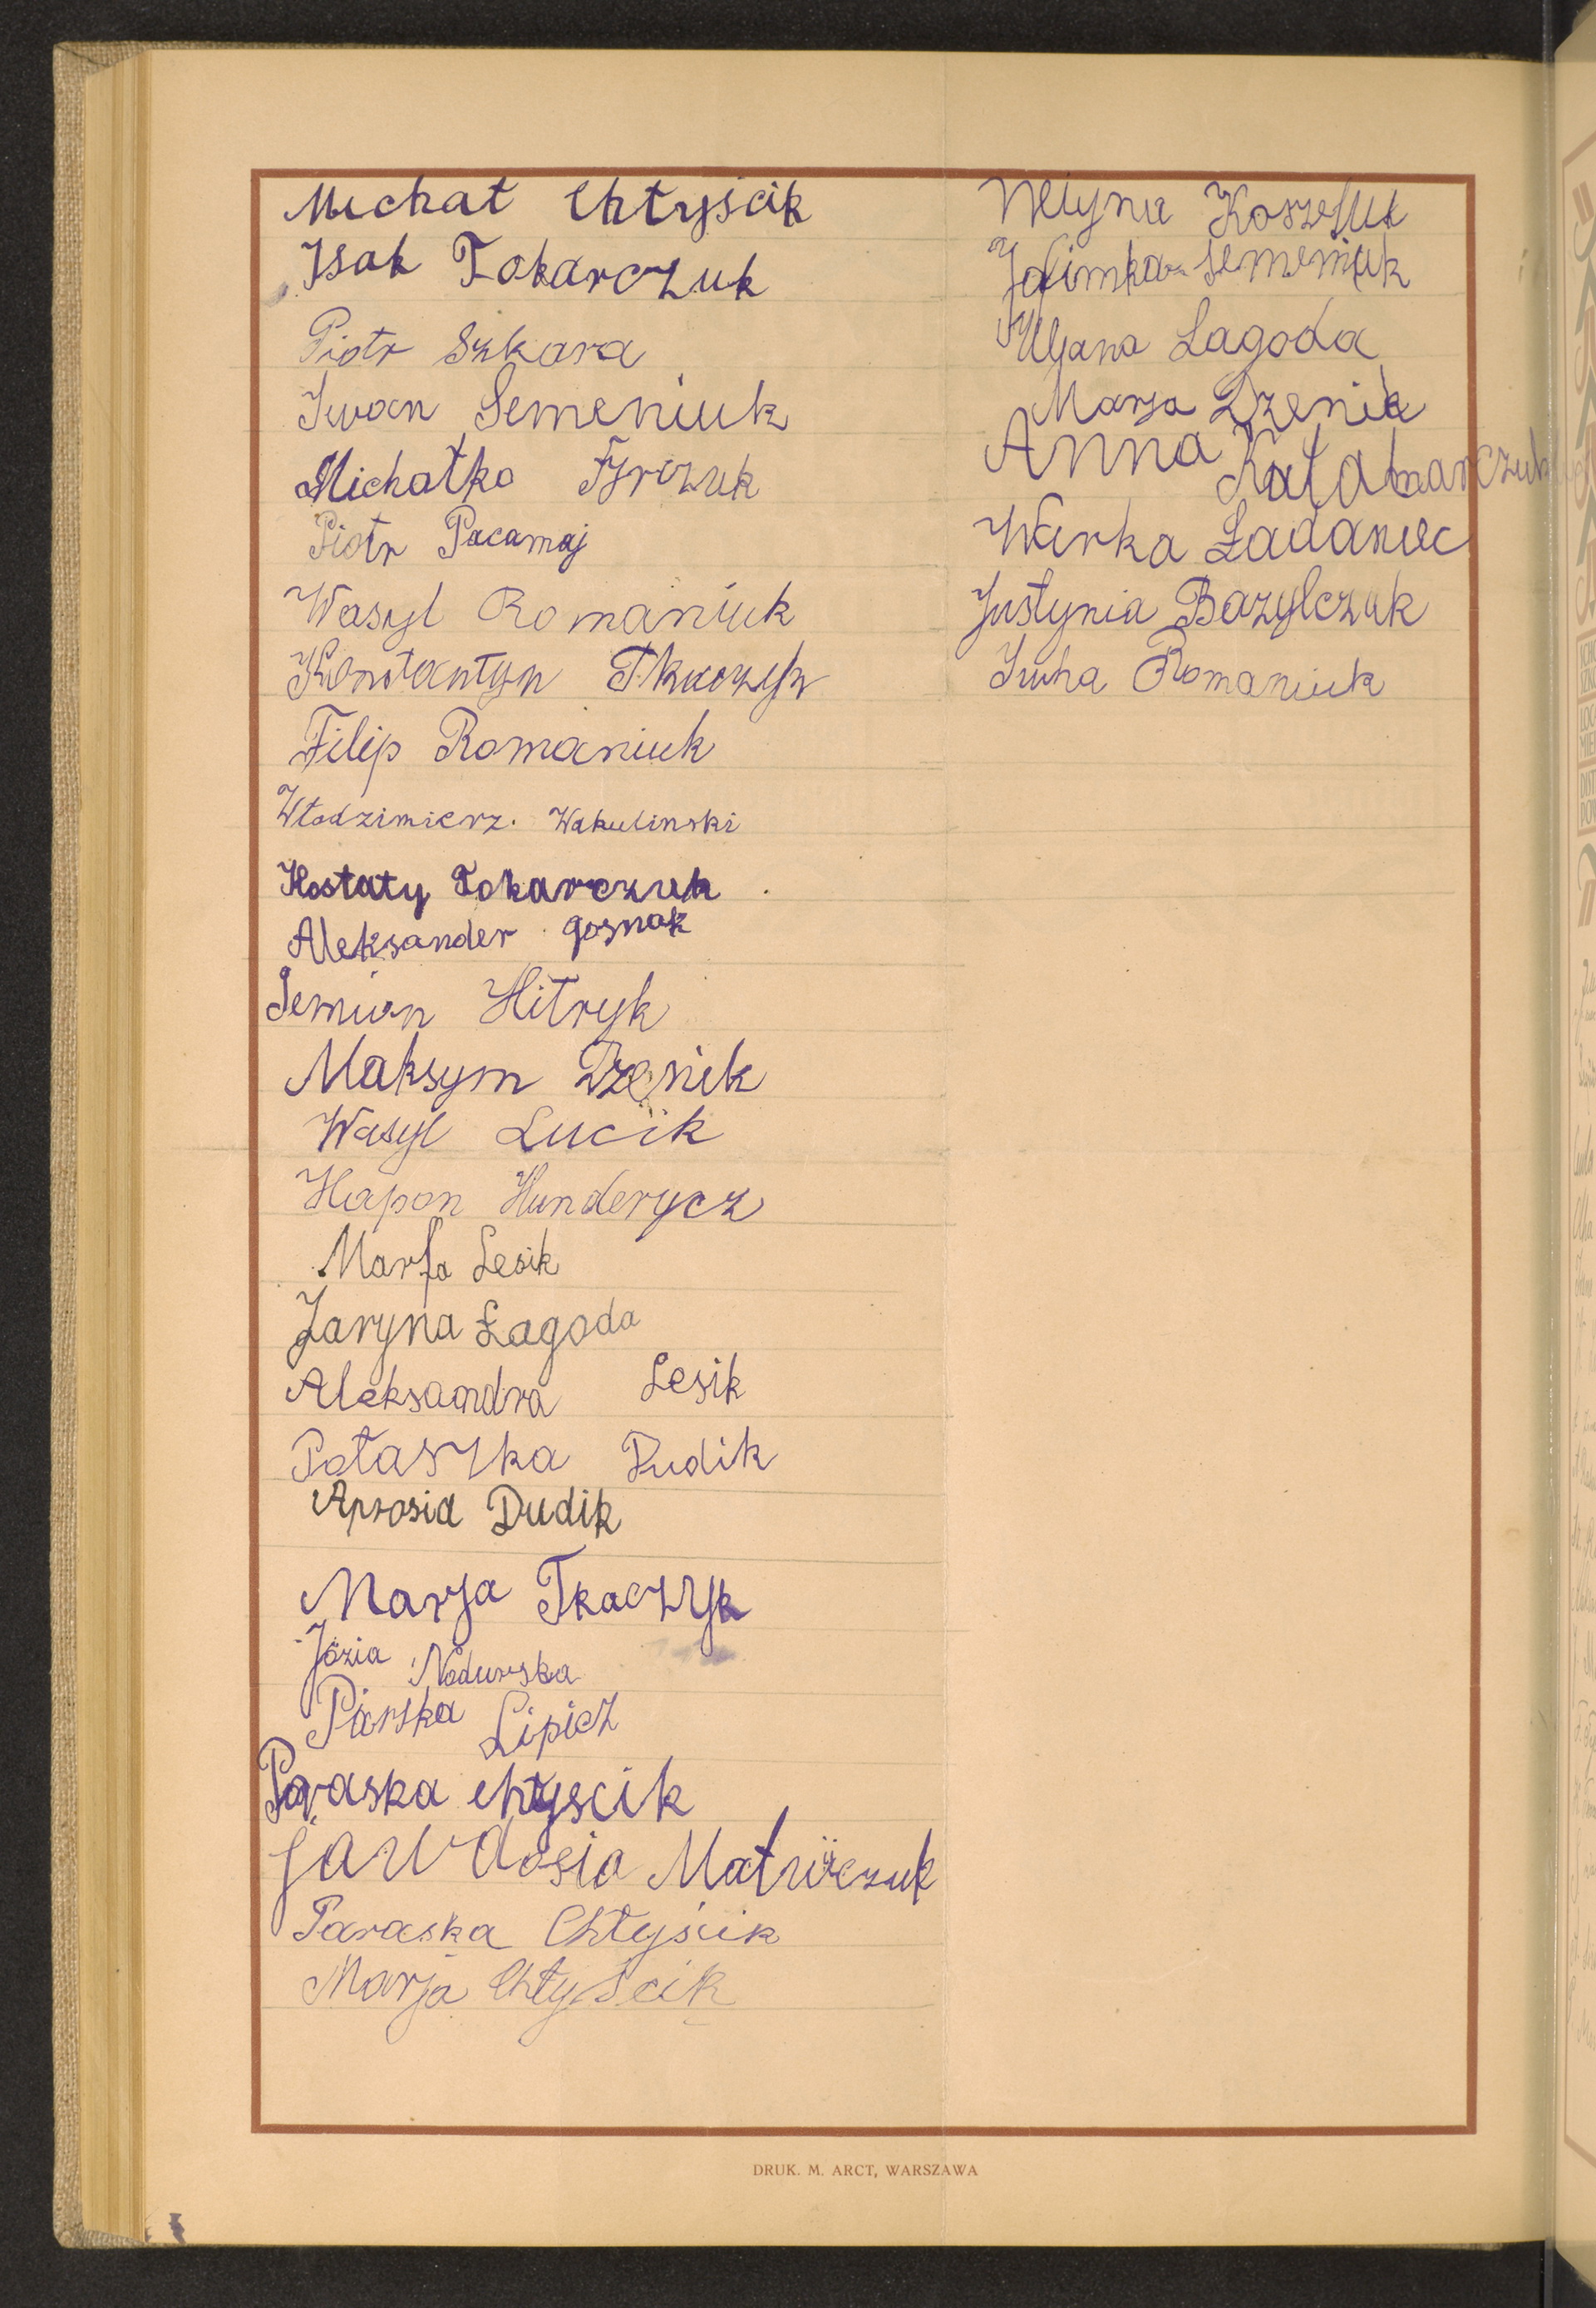 Michał Chtyścik
Isak Tokarczuk
Piotr Szkara
Iwan Semeniuk
Michałko Fyrczuk
Piotr Pacamaj
Wasyl Romaniuk
Konstantyn Tkaczyk
Filip Romaniuk
Włodzimierz. Wakulinski
Kostaty Tokarczuk
Aleksander gosnak
Semion Hitryk
Maksym Dzenik
Wasyl Lucik
Hapon Hunderycz
Marfa Lesik
Jaryna Łagoda
Aleksandra Lesik
Potaszka Dudik
Aprosia Dudik
Marja Tkaczyk
Józia Nodurska
Parska Lipicz
Paraska Chtyscik
Jawdosia
Paraska Chtyścik
Marja Chtyścik
Koszeluk
Semeniuk
Uljana Lagoda
Marja Dzenik
Anna
Warka Ładaniec
Justynia Bazylczuk
Juha Romaniuk
DRUK. M. ARCT, WARSZAWA